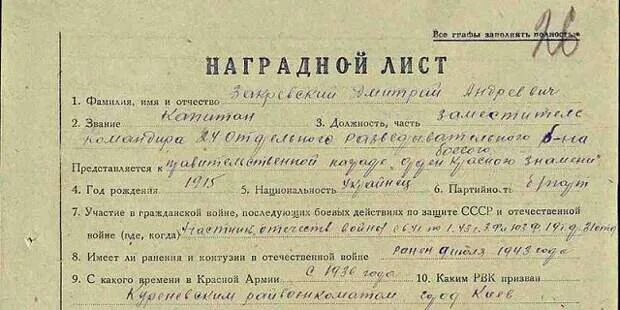 Все графы заполнять полностью
26
НАГРАДНОЙ ЛИСТ
1. Фамилия, имя и отчество Закревский Дмитрий Андреевич
2. Звание Капитан 3. Должность, часть заместитель
командира 24 отдельного разведывательного б-на
боевого
Представляется к правительственной награде орден Красного Знамени
4. Год рождения 1915 5. Национальность Украинец 6. Партийность б/парт
7. Участие в гражданской войне, последующих боевых действиях по защите СССР и отечественной
войне (где, когда) Участник отечеств войны с 41 по 1.45 г.
8. Имеет ли ранения и контузии в отечественной войне ранен 1943 года
9. С какого времени в Красной Армии с 1936 года 10. Каким РВК призван
Куреневским райвоенкоматом город Киев